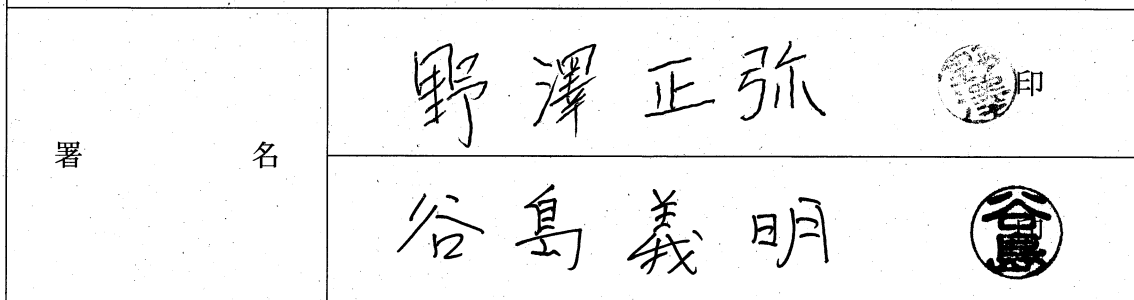 署名
野澤正弥 野澤 印
谷島義明 谷島